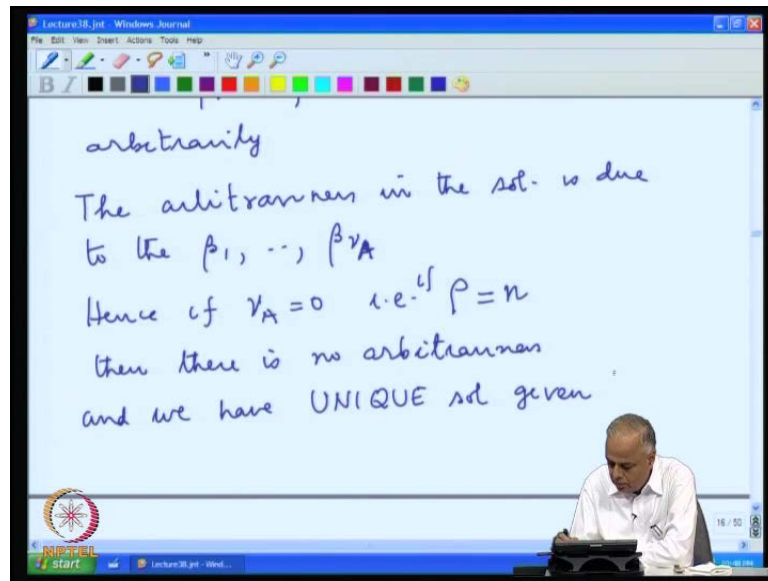 Lecture38.jnt - Windows Journal
File Edit View Insert Actions Tools Help
B I
arbitrarily
The arbitrariness in the sol. is due
to the β1, .., βνA
Hence if νA = 0 i.e. if ρ = n
then there is no arbitrariness
and we have UNIQUE sol given
16 / 50
NPTEL
start Lecture38.jnt - Wind...